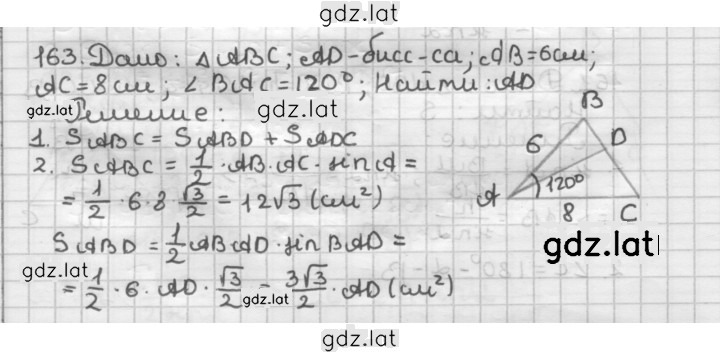 gdz.lat
163. Дано: △ABC; AD-бисс-са; AB=6см;
AC=8см; ∠BAC=120°; Найти: AD
gdz.lat Решение: gdz.lat
1. SABC = SABD + SADC
2. SABC = 1/2 · AB · AC · sin A =
= 1/2 · 6 · 8 √3/2 = 12√3 (см²)
SABD = 1/2 AB AD · sin BAD =
gdz.lat
= 1/2 · 6 · AD · √3/2 = 3√3/2 · AD (см²)
gdz.lat
B
6 D
A 120°
8 C
gdz.lat
gdz.lat